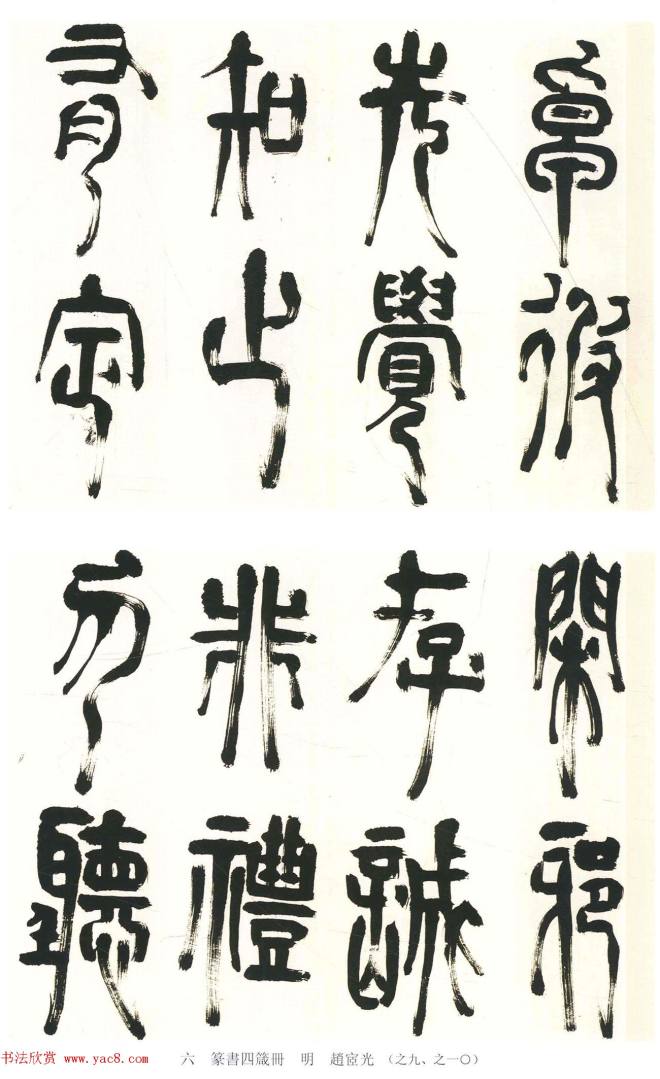 卓彼
先覺
知止
有定
閑邪
存誠
非禮
勿聽
书法欣赏 www.yac8.com
六 篆書四箴冊 明 趙宧光 (之九、之一〇)